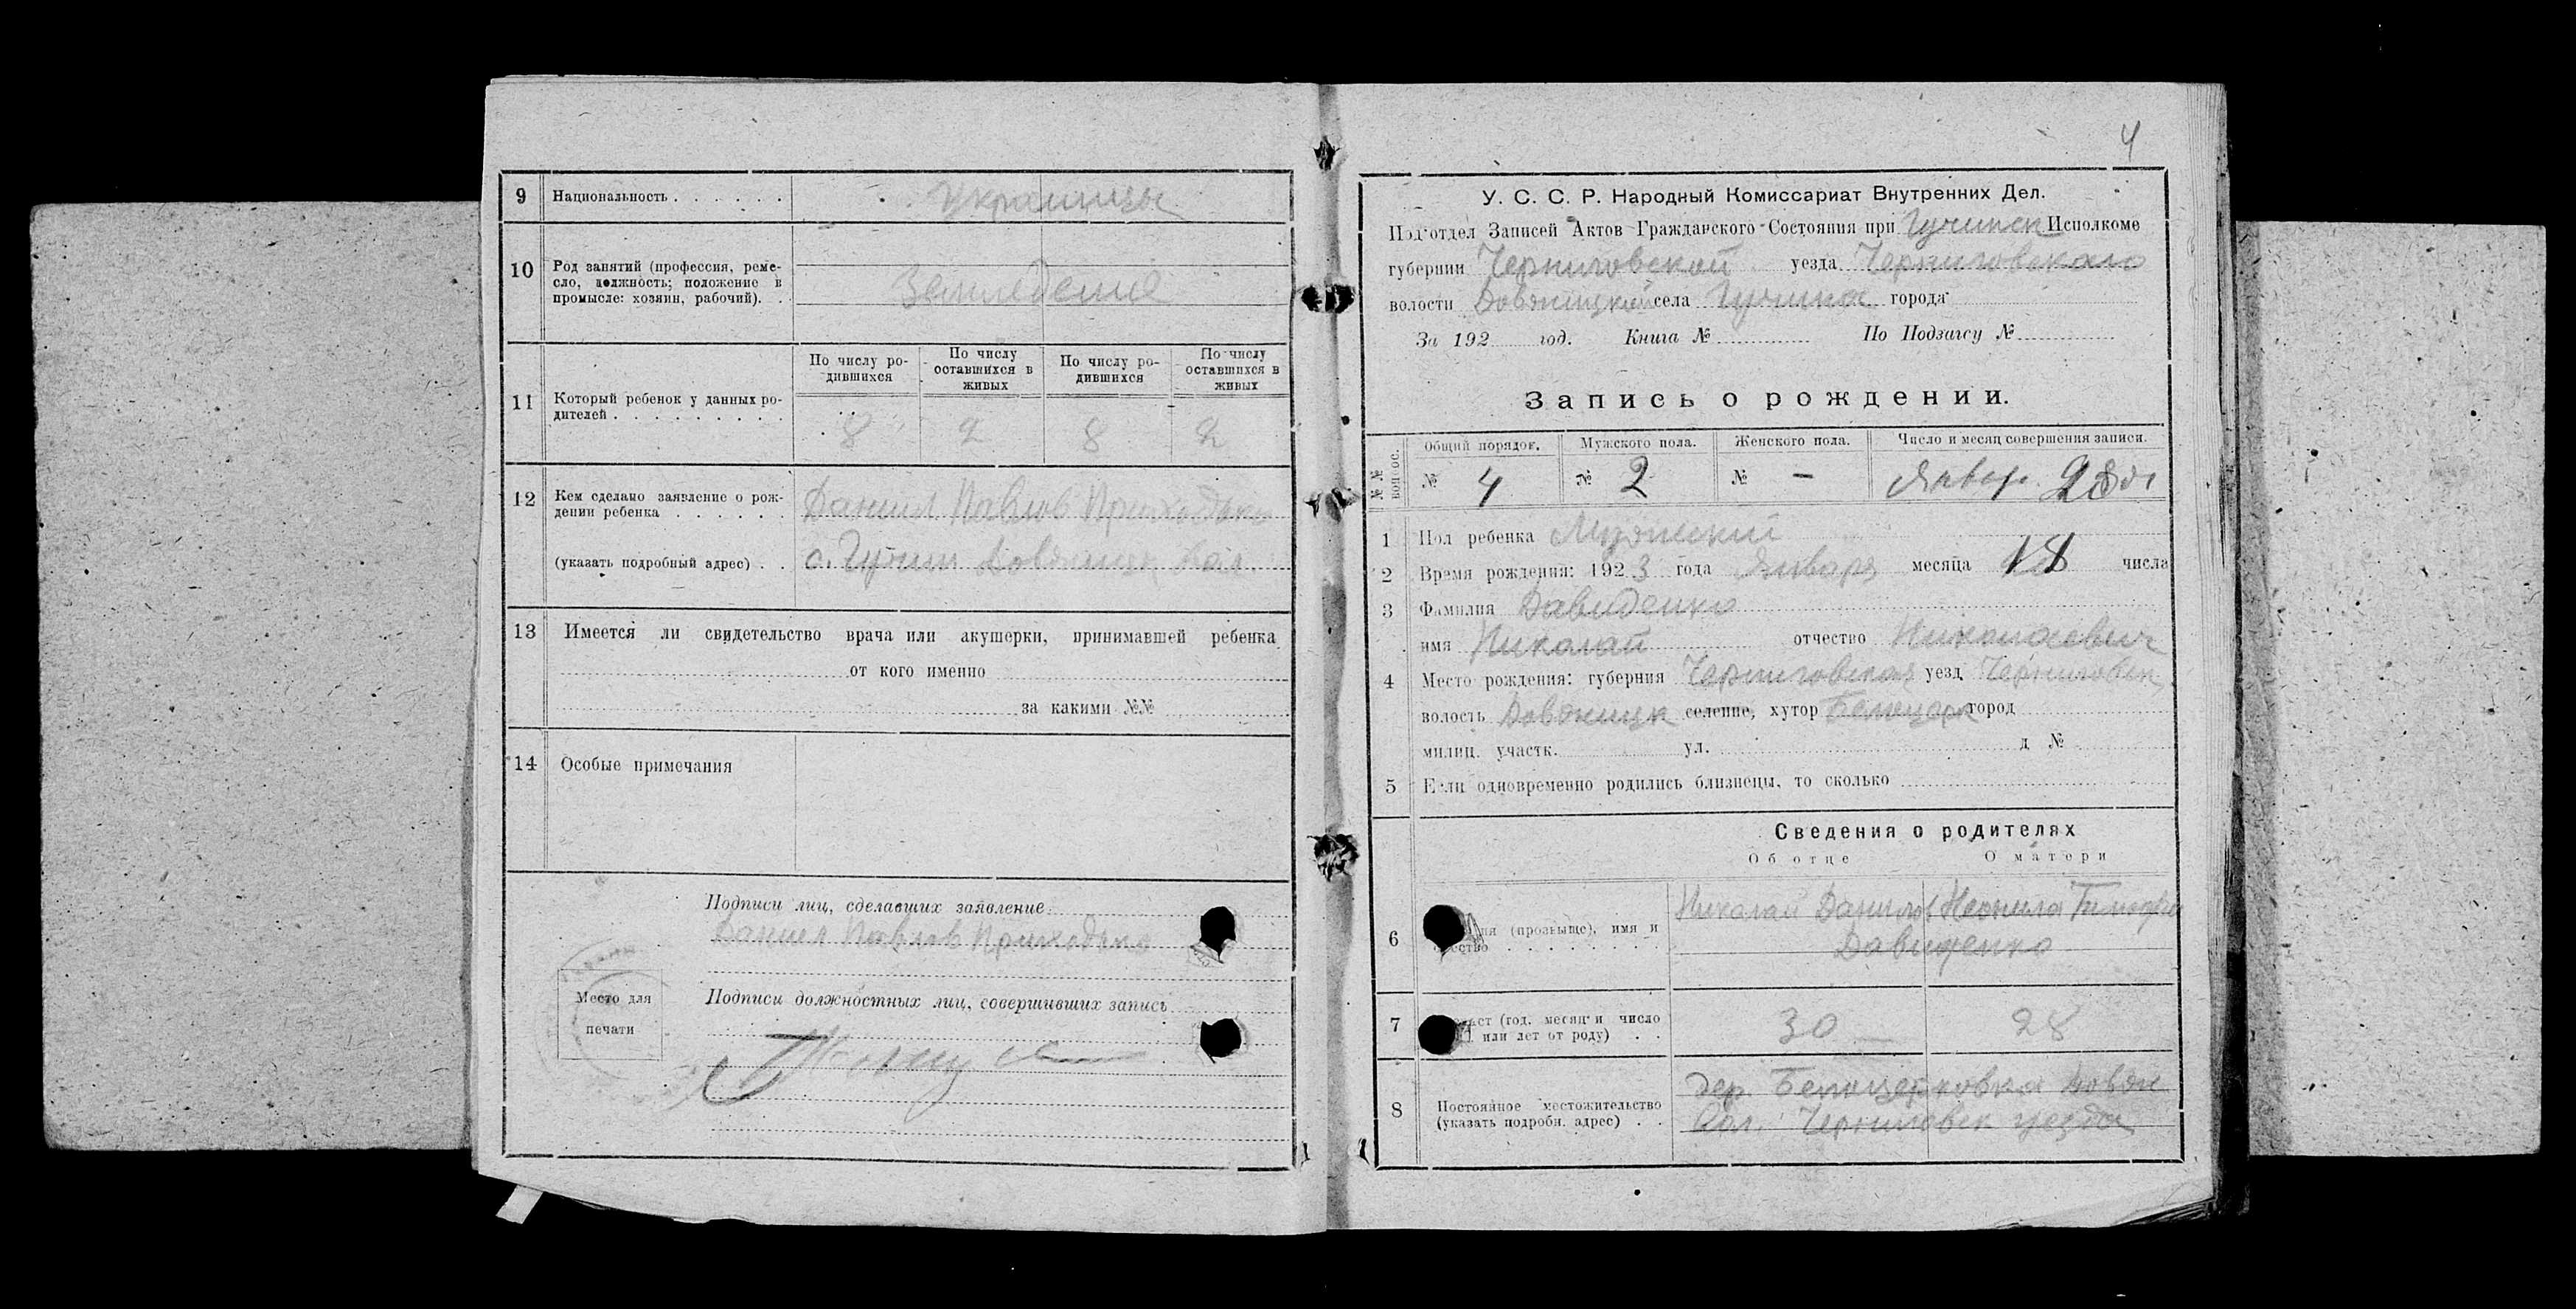 9 Национальность . . . . . . Украинцы
10 Род занятий (профессия, реме-
сло, должность; положение в
промысле: хозяин, рабочий). . Земледелие
11 Который ребенок у данных ро-
дителей . . . . . . . . . .
По числу ро-
дившихся
По числу
оставшихся в
живых
По числу ро-
дившихся
По числу
оставшихся в
живых
8 2 8 2
12 Кем сделано заявление о рож-
дении ребенка . . . . . . Даниил Павлов Приходько
(указать подробный адрес) . . с. Гучин Довжицк Вол.
13 Имеется ли свидетельство врача или акушерки, принимавшей ребенка
от кого именно
за какими №№
14 Особые примечания
Подписи лиц, сделавших заявление
Даниил Павлов Приходько
Место для
печати
Подписи должностных лиц, совершивших запись
4
У. С. С. Р. Народный Комиссариат Внутренних Дел.
Под'отдел Записей Актов Гражданского Состояния при Гучинск Исполкоме
губернии Черниговской уезда Черниговского
волости Довжицкой села Гучина города
За 192 год. Книга № По Подзагсу №
Запись о рождении.
№№ вопрос.
Общий порядок. Мужского пола. Женского пола. Число и месяц совершения записи.
№ 4 № 2 № — Январ.
1 Пол ребенка Мужеский
2 Время рождения: 1923 года Января месяца 18 числа
3 Фамилия Давиденко
имя Николай отчество Николаевич
4 Место рождения: губерния Черниговская уезд Черниговск
волость Довжицк селение, хутор Белоцерк город
милиц. участк. ул. д №
5 Если одновременно родились близнецы, то сколько
Сведения о родителях
Об отце О матери
6 (прозвыще), имя и
Николай Данилов Неонила Тимофе
Давиденко
7 (год, месяц и число
или лет от роду) . . 30 28
8 Постоянное местожительство
(указать подробн. адрес) . .
дер. Белоцерковка Довж
Вол. Черниговск уезда